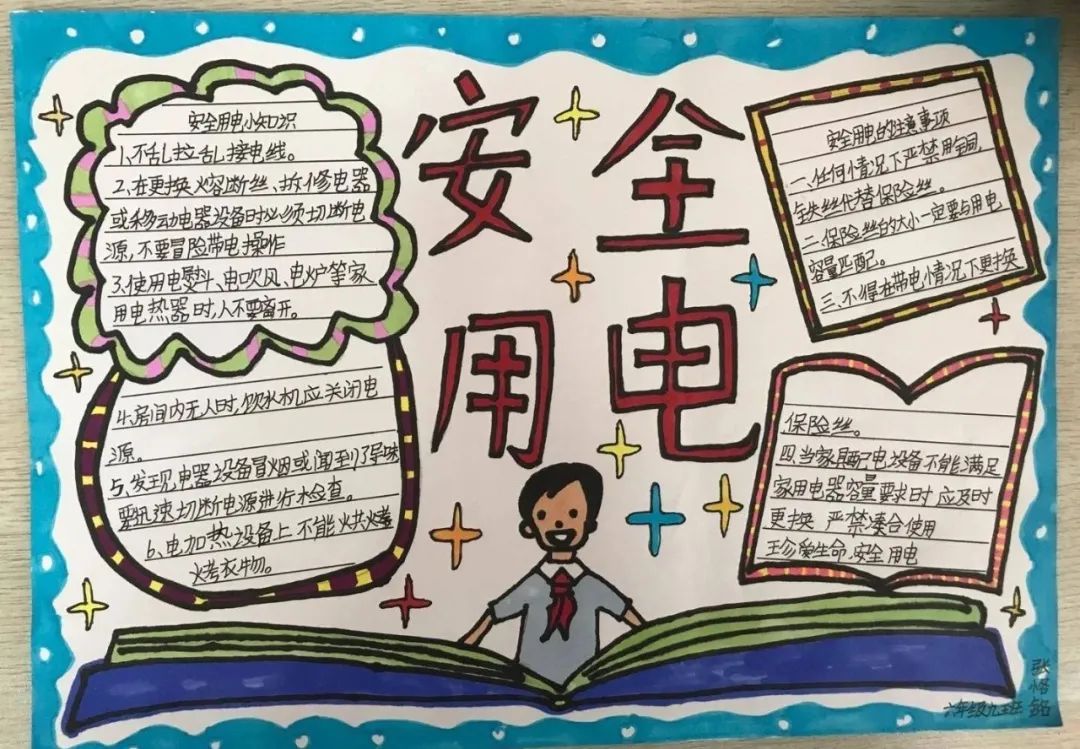 安全用电
安全用电小知识
1、不乱拉乱接电线。
2、在更换熔断丝、拆修电器
或移动电器设备时必须切断电
源,不要冒险带电操作
3.使用电熨斗、电吹风、电炉等家
用电热器时,人不要离开。
4.房间内无人时,饮水机应关闭电
源。
5、发现电器设备冒烟或闻到了异味
要迅速切断电源进行检查。
6、电加热设备上不能烘烤
烤衣物。
安全用电的注意事项
一、任何情况下严禁用铜,
铁丝代替保险丝。
二.保险丝的大小一定要与用电
容量匹配。
三、不得在带电情况下更换
保险丝。
四.当家用配电设备不能满足
家用电器容量要求时 应及时
更换 严禁凑合使用
珍爱生命,安全用电
六年级九班
张恪铭